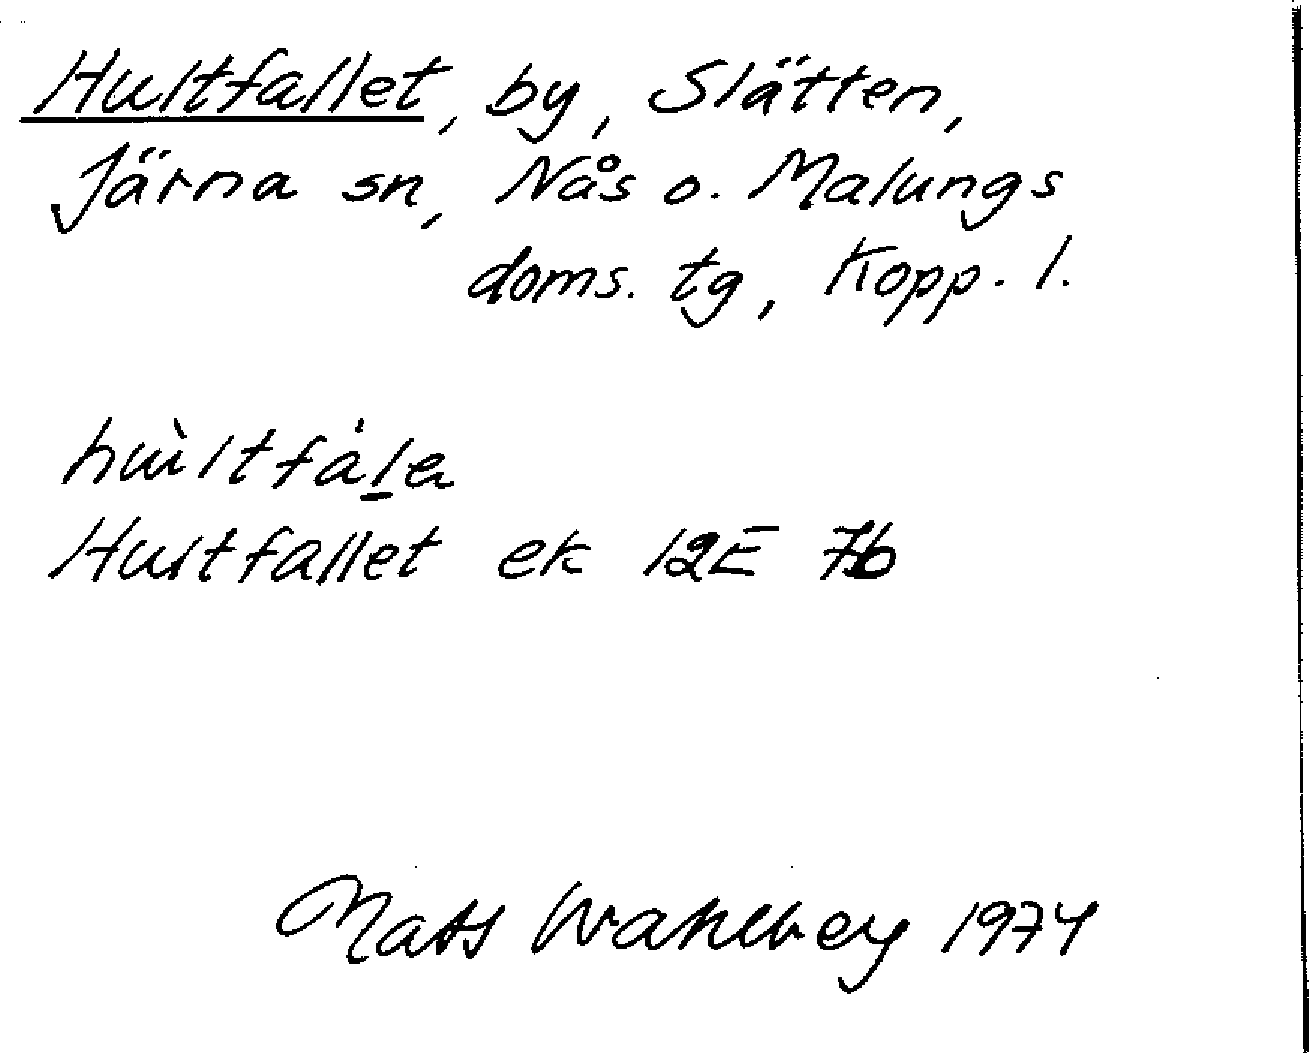 Hultfallet, by, Slätten,
Järna sn, Nås o. Malungs
doms. tg, Kopp. l.
hùltfȧl̲a
Hultfallet ek 12E 7b
Mats Wahlberg 1974